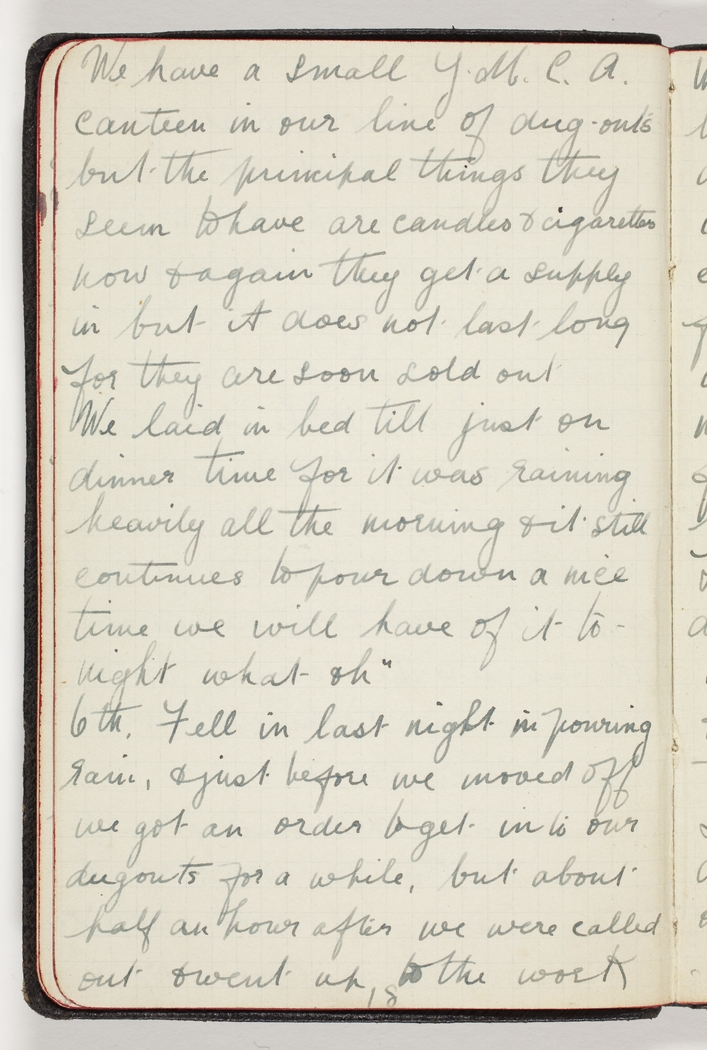 We have a small Y.M.C.A.
canteen in our line of dug-outs
but the principal things they
seem to have are candles & cigarettes
now & again they get a supply
in but it does not last long
for they are soon sold out
We laid in bed till just on
dinner time for it was raining
heavily all the morning & it still
continues to pour down a nice
time we will have of it to-
night what oh"
6th. Fell in last night in pouring
rain, & just before we moved off
we got an order to get in to our
dugouts for a while, but about
half an hour after we were called
out & went up to the work
18